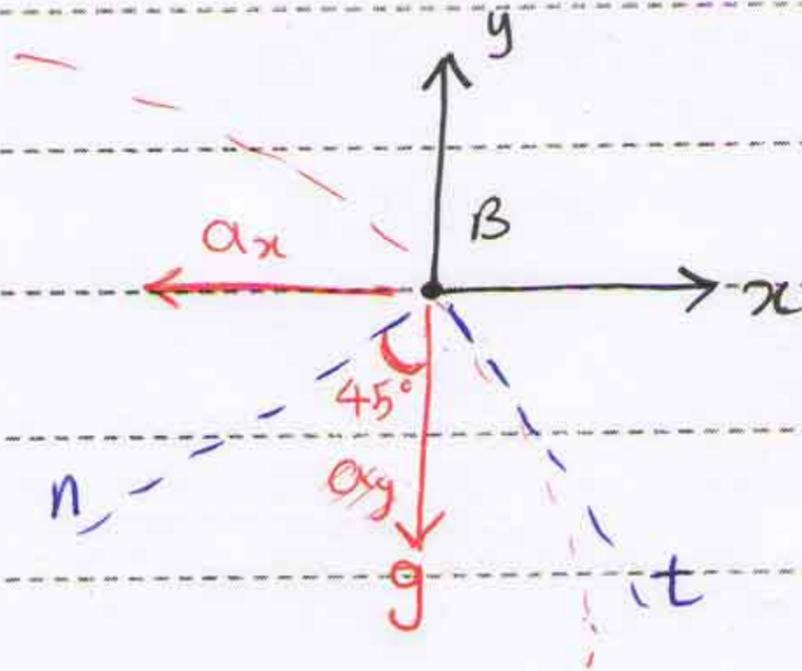 y
B
ax
x
45°
n
ay
g
t